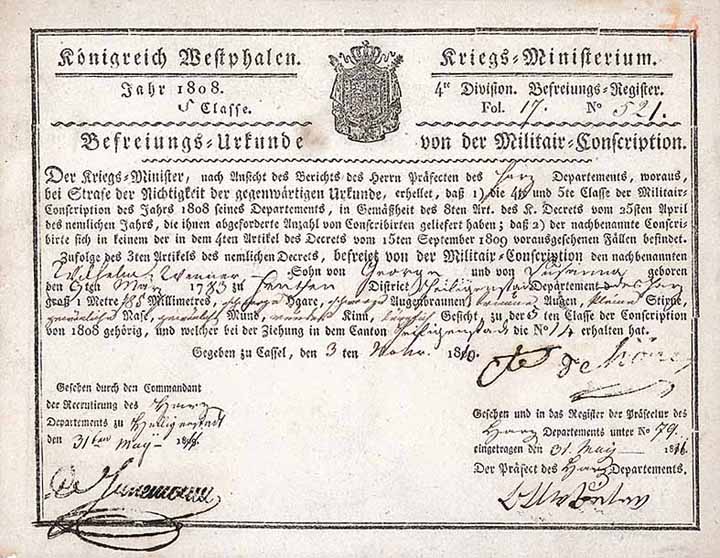 Königreich Westphalen. Kriegs=Ministerium.
Jahr 1808. 4te Division. Befreiungs=Register.
5 Classe. Fol. 17. No 521.
Befreiungs=Urkunde von der Militair=Conscription.
Der Kriegs=Minister, nach Ansicht des Berichts des Herrn Präfecten des Harz Departements, woraus,
bei Strafe der Nichtigkeit der gegenwärtigen Urkunde, erhellet, daß 1) die 4te und 5te Classe der Militair=
Conscription des Jahrs 1808 seines Departements, in Gemäßheit des 8ten Art. des K. Decrets vom 25sten April
des nemlichen Jahrs, die ihnen abgeforderte Anzahl von Conscribirten geliefert haben; daß 2) der nachbenannte Conscri=
birte sich in keinem der in dem 4ten Artikel des Decrets vom 15ten September 1809 vorausgesehenen Fällen befindet.
Zufolge des 3ten Artikels des nemlichen Decrets, befreiet von der Militair=Conscription den nachbenannten
Wilhelm Werner Sohn von George und von Susanna geboren
den 9ten May 1783 zu District Heiligenstadt Departement des Harz
groß 1 Metre Millimetres, Haare, Augenbraunen, Augen, kleine Stirne,
gewöhnliche Nase, gewöhnliche Mund, rundes Kinn, Gesicht, zu der 5 ten Classe der Conscription
von 1808 gehörig, und welcher bei der Ziehung in dem Canton Heiligenstadt die No 14 erhalten hat.
Gegeben zu Cassel, den 3 ten Nobr. 1810.
Gesehen durch den Commandant
der Recrutirung des Harz
Departements zu Heiligenstadt
den 31ten May
Gesehen und in das Register der Präfectur des
Harz Departements unter No 79.
eingetragen den 31. May
Der Präfect des Harz Departements.